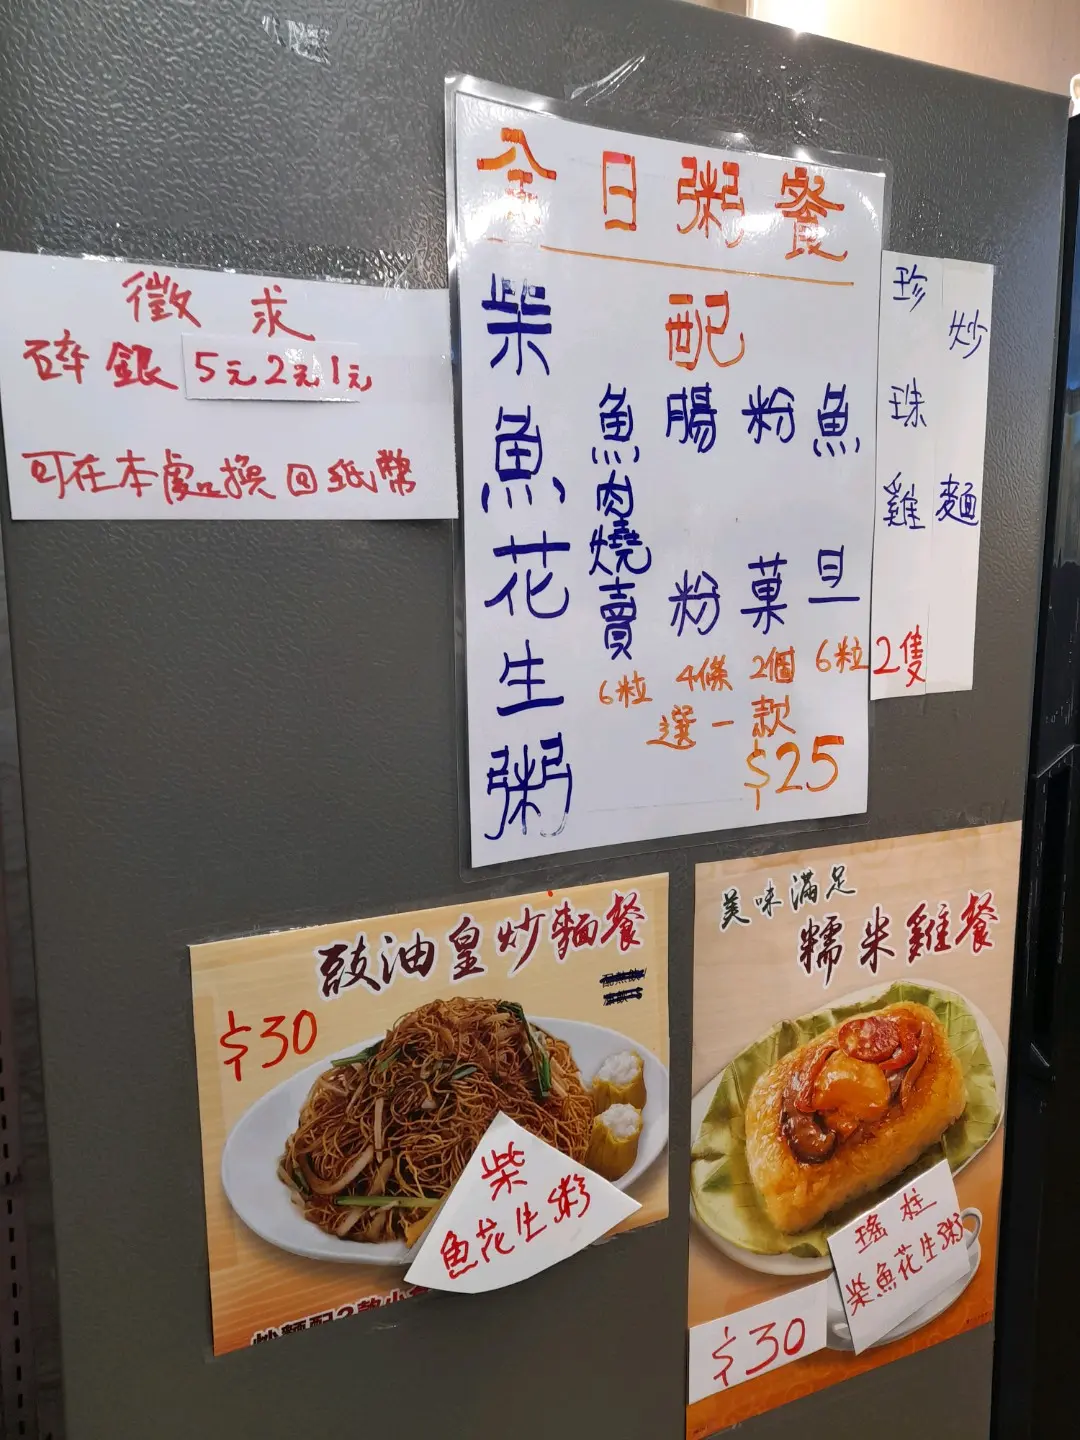 徵求
碎銀5元2元1元
可在本處換回紙幣
全日粥餐
柴魚花生粥
配
魚肉燒賣 6粒
腸粉 4條
粉菓 2個
魚旦 6粒
選一款
$25
珍珠雞 2隻
炒麵
豉油皇炒麵餐
$30
柴
魚花生粥
美味滿足
糯米雞餐
瑤柱
柴魚花生粥
$30